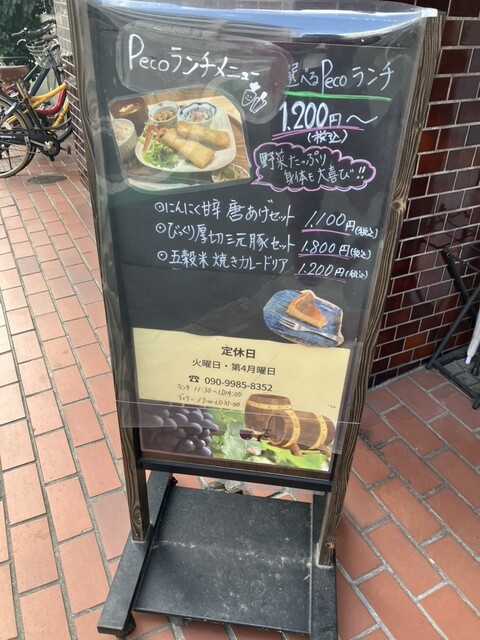 Pecoランチメニュー
選べるPecoランチ
1.200円〜
(税込)
野菜たっぷり
身体も大喜び!!
◎にんにく甘辛 唐あげセット 1.100円(税込)
◎びっくり厚切三元豚セット 1.800円(税込)
◎五穀米 焼きカレードリア 1.200円(税込)
定休日
火曜日・第4月曜日
☎ 090-9985-8352
ランチ 11:30〜LO14:00
ディナー 17:00〜LO21:00